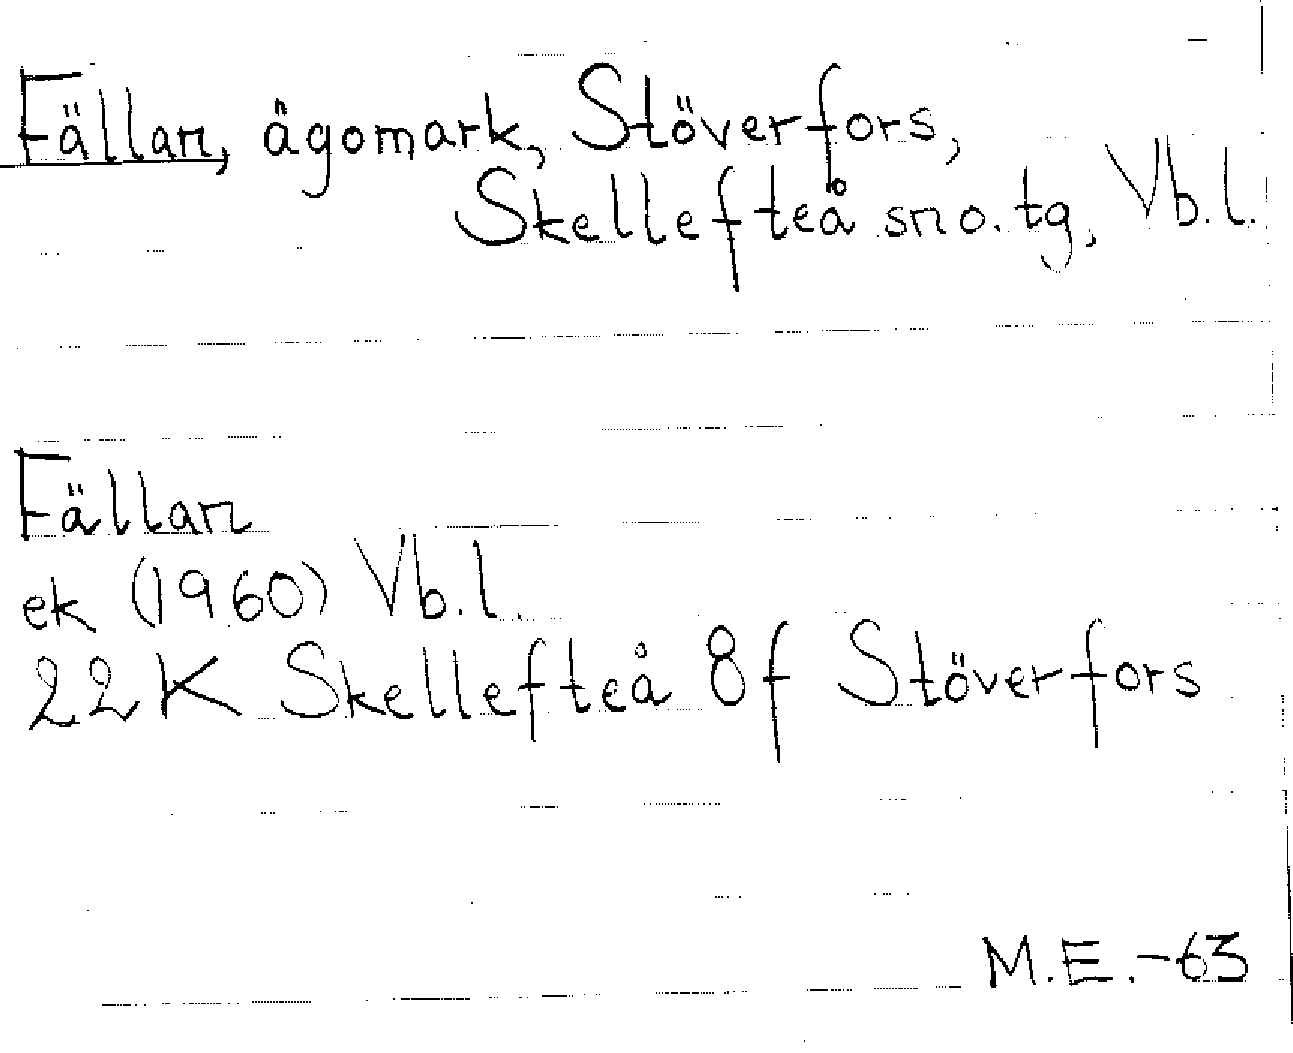 Fällan, ägomark, Stöverfors,
Skellefteå sn o. tg, Vb.l.
Fällan
ek (1960) Vb.l.
22K Skellefteå 8f Stöverfors
M.E.-63